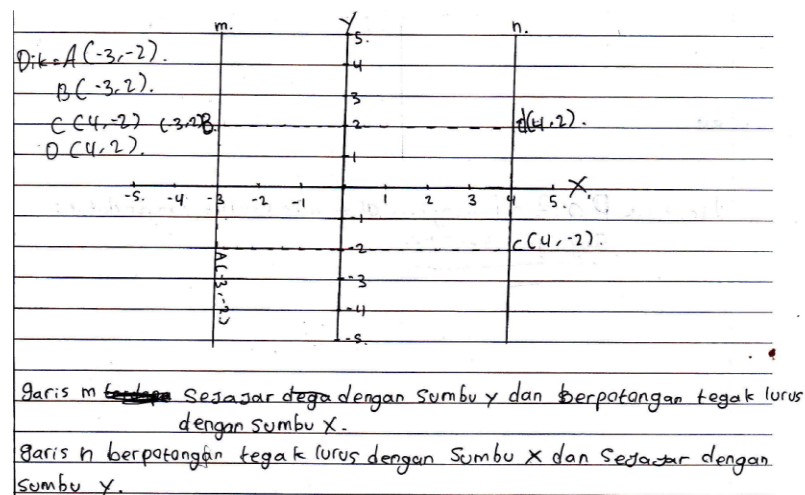 m. Y n.
Dik = A (-3,-2).
B (-3,2).
C (4,-2) (-3,2)B d(4,2).
D (4,2).
5.
4
3
2
1
-5. -4 -3 -2 -1 1 2 3 4 5. X.
-1
-2 C(4,-2).
A(-3,-2)
-3
-4
-5.
garis m sejajar dega dengan sumbu y dan berpotongan tegak lurus
dengan sumbu X.
garis n berpotongan tegak lurus dengan sumbu X dan sejajar dengan
sumbu Y.